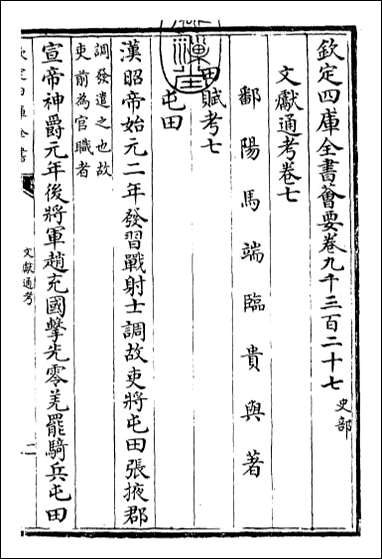 欽定四庫全書薈要卷九千三百二十七 史部
文獻通考卷七
鄱陽馬端臨貴與著
田賦考七
屯田
漢昭帝始元二年發習戰射士調故吏將屯田張掖郡
調發遣之也故
吏前為官職者
宣帝神爵元年後將軍趙充國擊先零羌罷騎兵屯田
欽定四庫全書
文獻通考